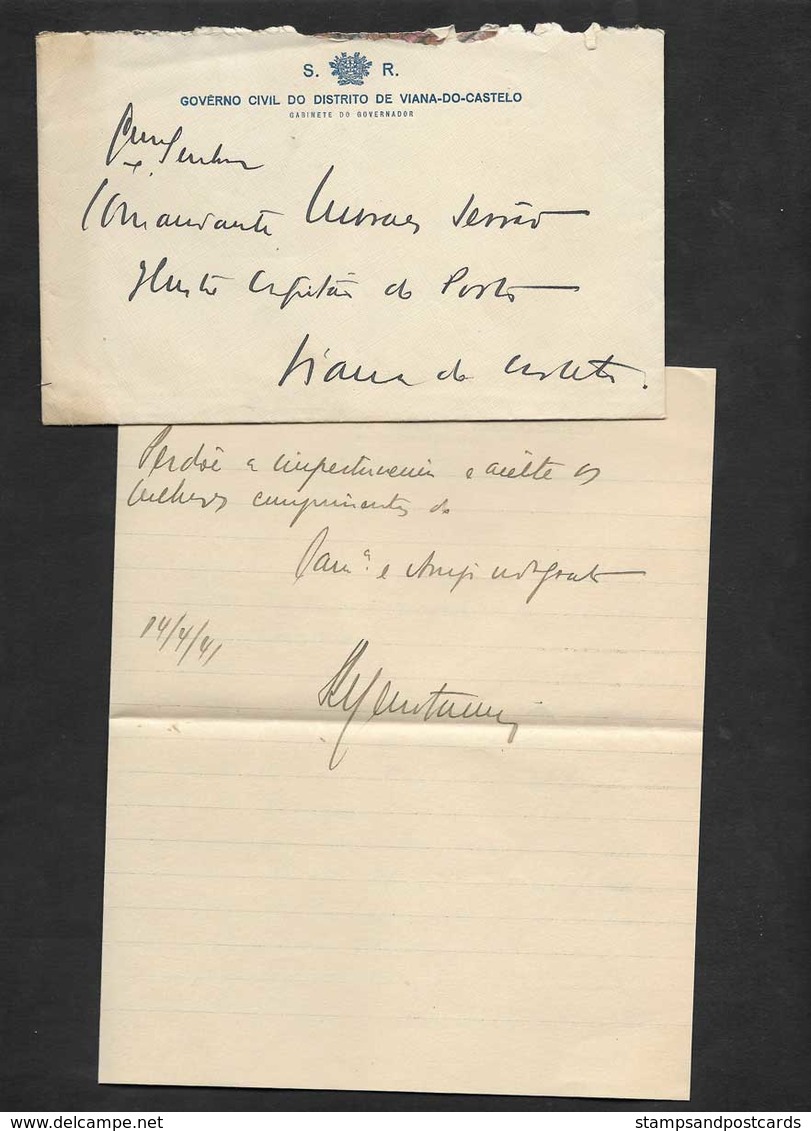 S. R.
GOVÊRNO CIVIL DO DISTRITO DE VIANA-DO-CASTELO
GABINETE DO GOVERNADOR
Senhor
Comandante Moraes Serrão
Ilustre Capitão do Porto
Viana do Castelo.
Perdôe a impertinencia e aceite os
melhores cumprimentos do
Cam.ª e Amigo
14/4/41
stampsandpostcards
www.delcampe.net